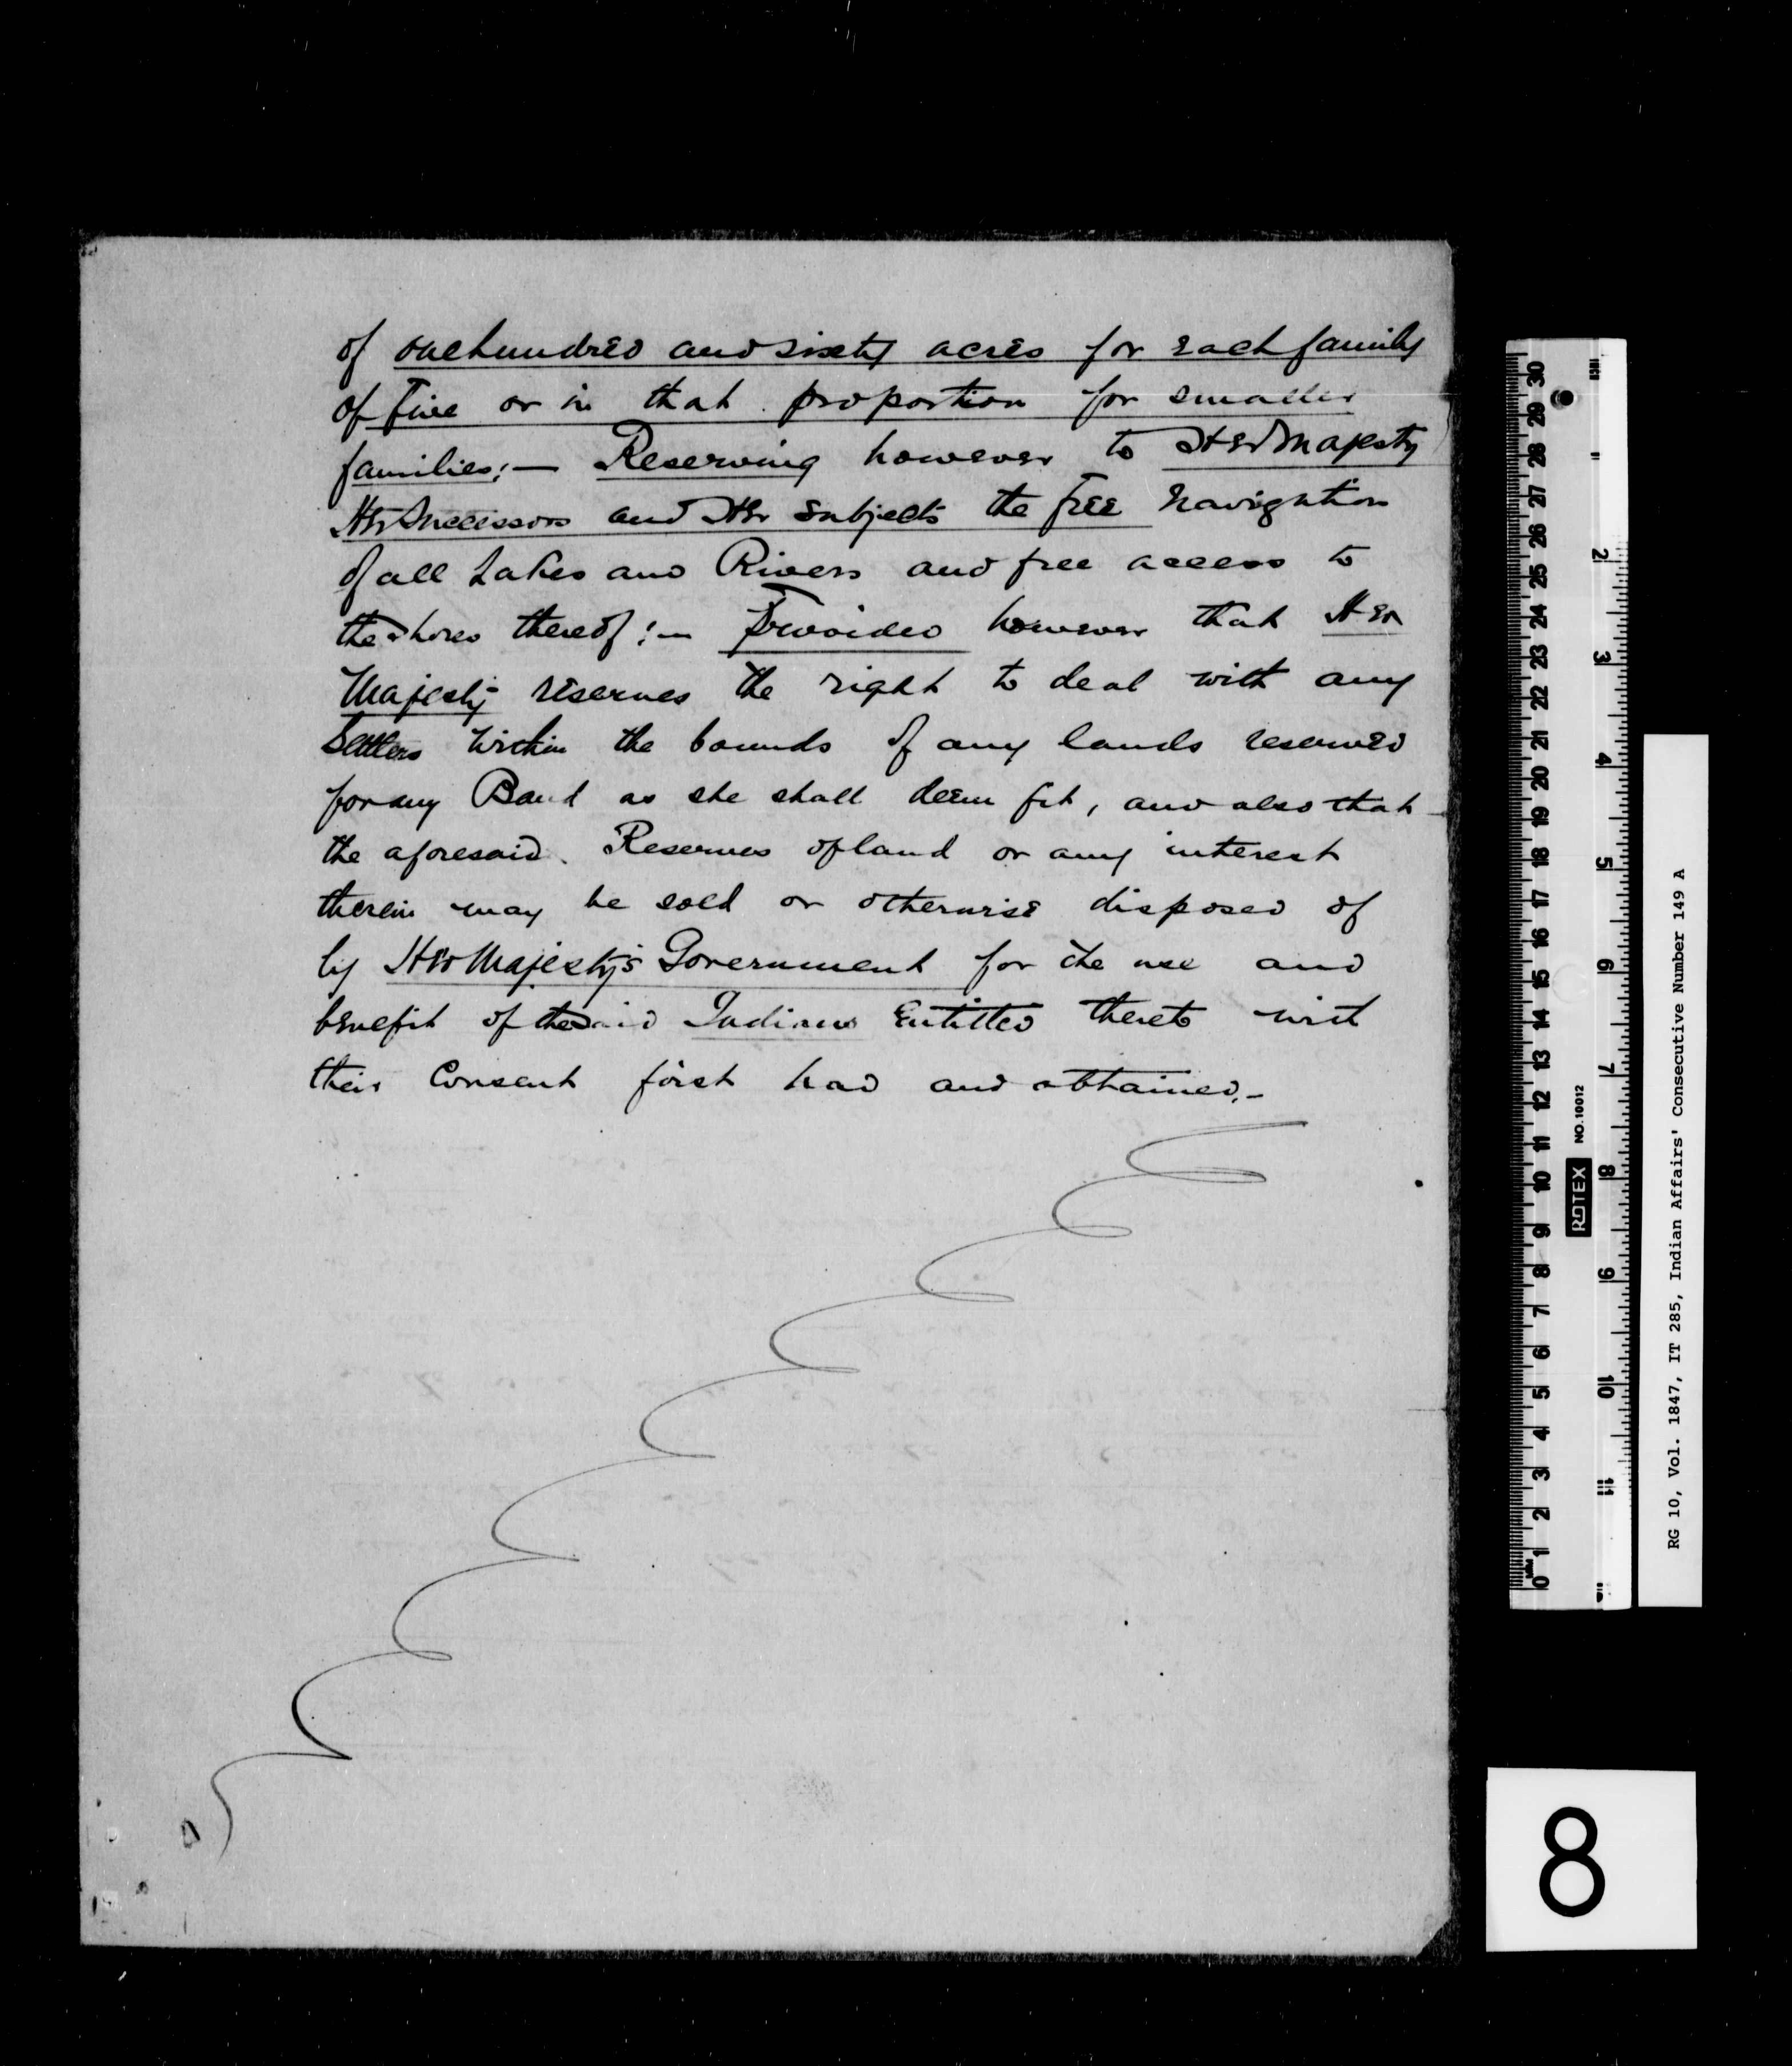 of one hundred and sixty acres for each family
of Five or in that proportion for smaller
families;— Reserving however to Her Majesty
Her Successors and Her Subjects the free navigation
of all Lakes and Rivers and free access to
the shores thereof:— Provided however that Her
Majesty reserves the right to deal with any
Settlers within the bounds of any lands reserved
for any Band as she shall deem fit, and also that
the aforesaid Reserves of land or any interest
therein may be sold or otherwise disposed of
by Her Majesty's Government for the use and
benefit of the said Indians Entitled thereto with
their Consent first had and obtained.—
ROTEX NO.10012
0 1 2 3 4 5 6 7 8 9 10 11 12 13 14 15 16 17 18 19 20 21 22 23 24 25 26 27 28 29 30
2 3 4 5 6 7 8 9 10 11
RG 10, Vol. 1847, IT 285, Indian Affairs' Consecutive Number 149 A
8